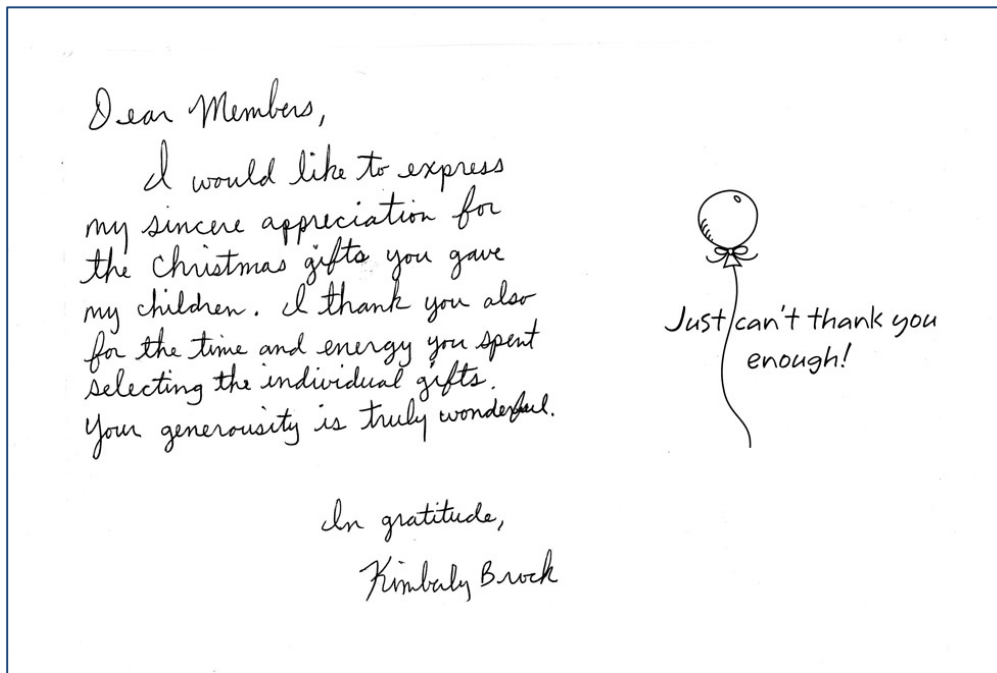 Dear Members,
I would like to express
my sincere appreciation for
the Christmas gifts you gave
my children. I thank you also
for the time and energy you spent
selecting the individual gifts.
Your generousity is truly wonderful.
In gratitude,
Kimberly Brock
Just can't thank you
enough!